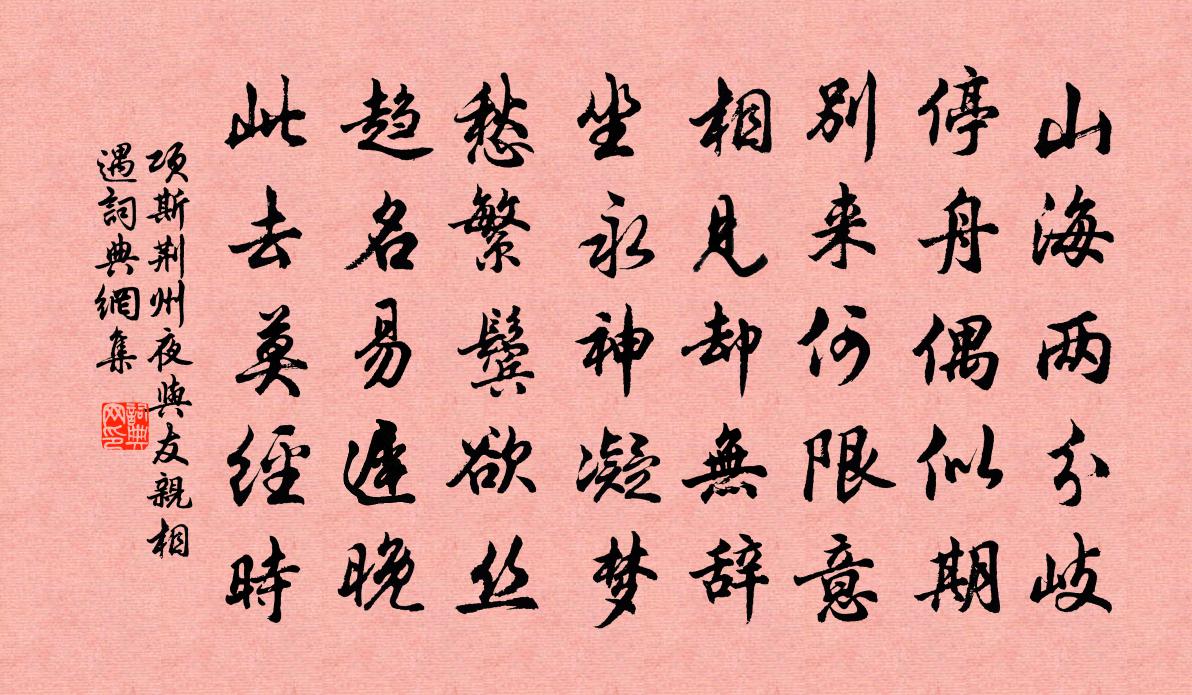 山海两分歧
停舟偶似期
别来何限意
相见却無辞
坐永神凝梦
愁繁鬓欲丝
趋名易迟晚
此去莫經時
项斯荆州夜與友親相
遇詞典網集
詞典网印